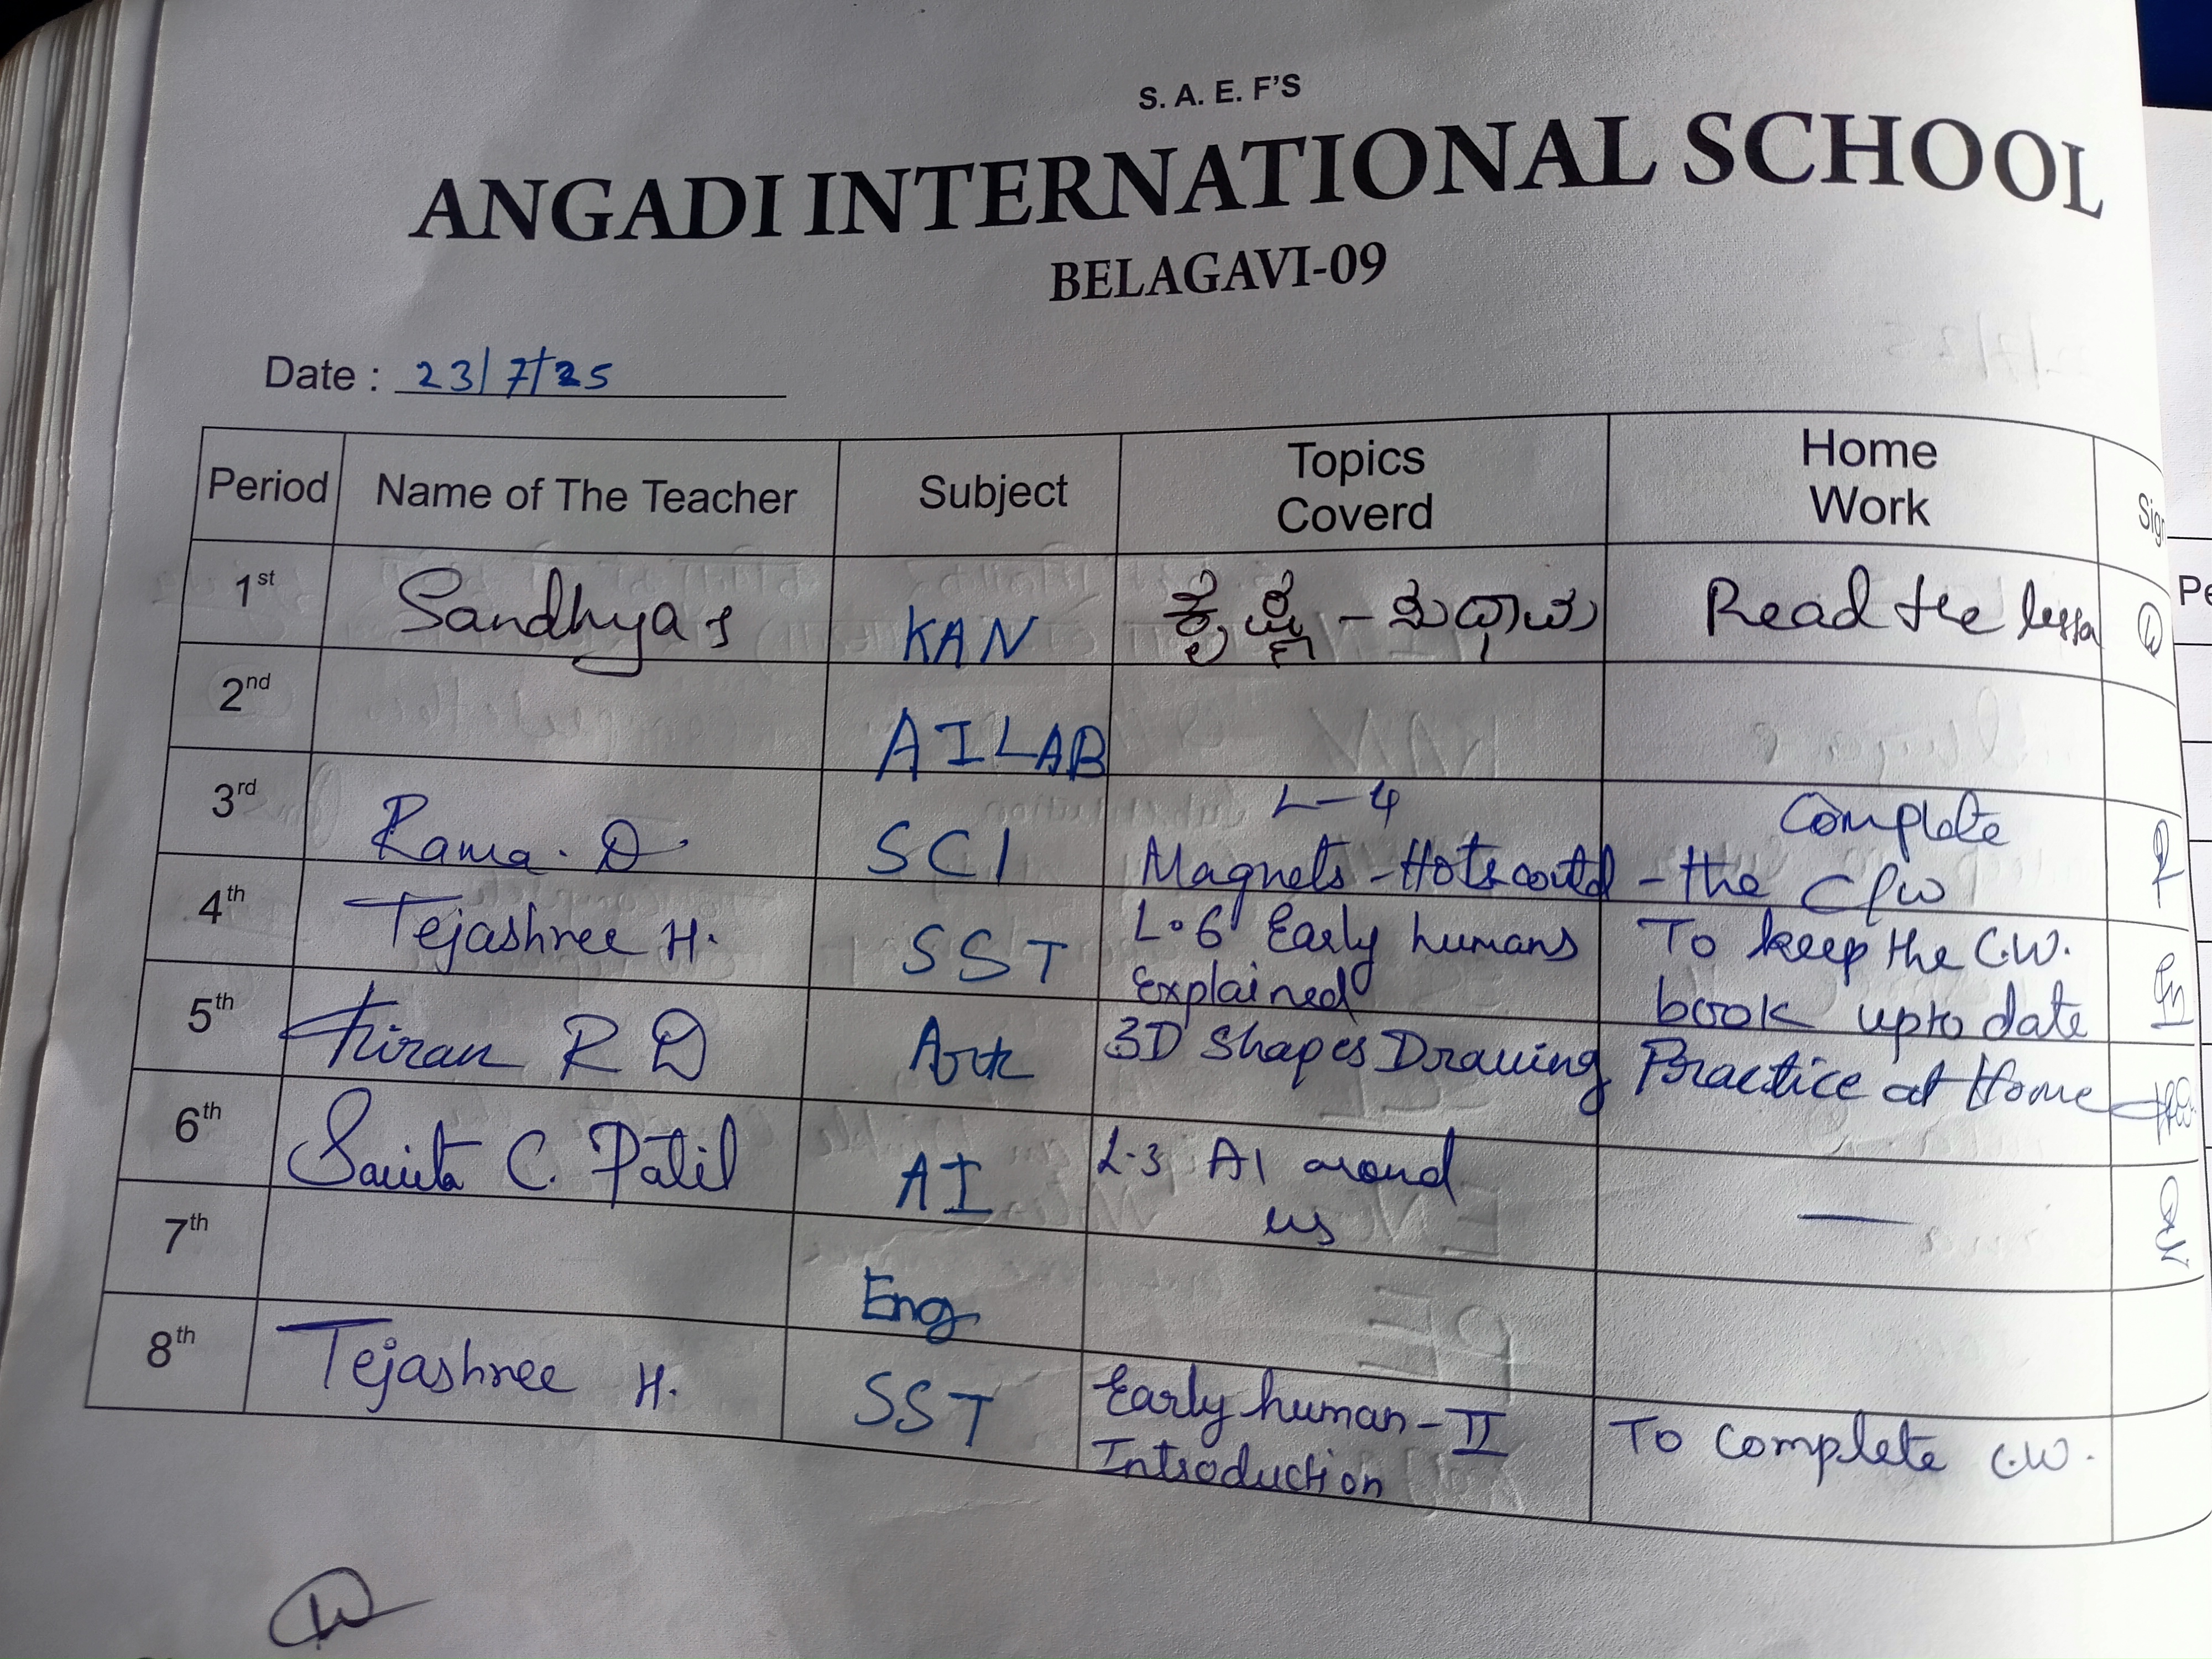 S. A. E. F'S
ANGADI INTERNATIONAL SCHOOL
BELAGAVI-09
Date : 23/7/25
Period Name of The Teacher Subject Topics Coverd Home Work Sig
1st Sandhya s KAN Read the lesson
2nd AI LAB
3rd Rama. D. SCI L-4 Complete
Magnets - Hots contd - the C/W
4th Tejashree H. SST L.6 Early humans To keep the C.W.
Explained book upto date
5th Kiran R D Art 3D Shapes Drawing Practice at Home
6th Savita C. Patil AI L.3 AI around
us —
7th Eng
8th Tejashree H. SST Early human - II To complete C.W.
Introduction
Pe